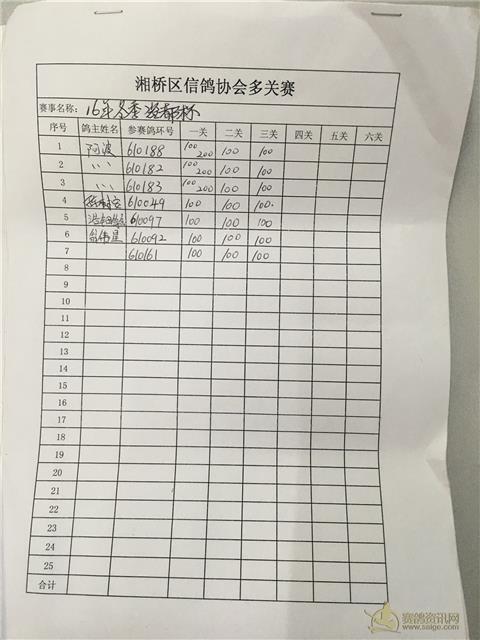 湘桥区信鸽协会多关赛
赛事名称: 16年冬季 杯
序号 鸽主姓名 参赛鸽环号 一关 二关 三关 四关 五关 六关
1 阿波 610188 100 200 100 100
2 〃 610182 100 200 100 100
3 〃 610183 100 200 100 100
4 610049 100 100 100
5 610097 100 100 100
6 伟星 610092 100 100 100
7 610161 100 100 100
8
9
10
11
12
13
14
15
16
17
18
19
20
21
22
23
24
25
合计
赛鸽资讯网
www.saige.com